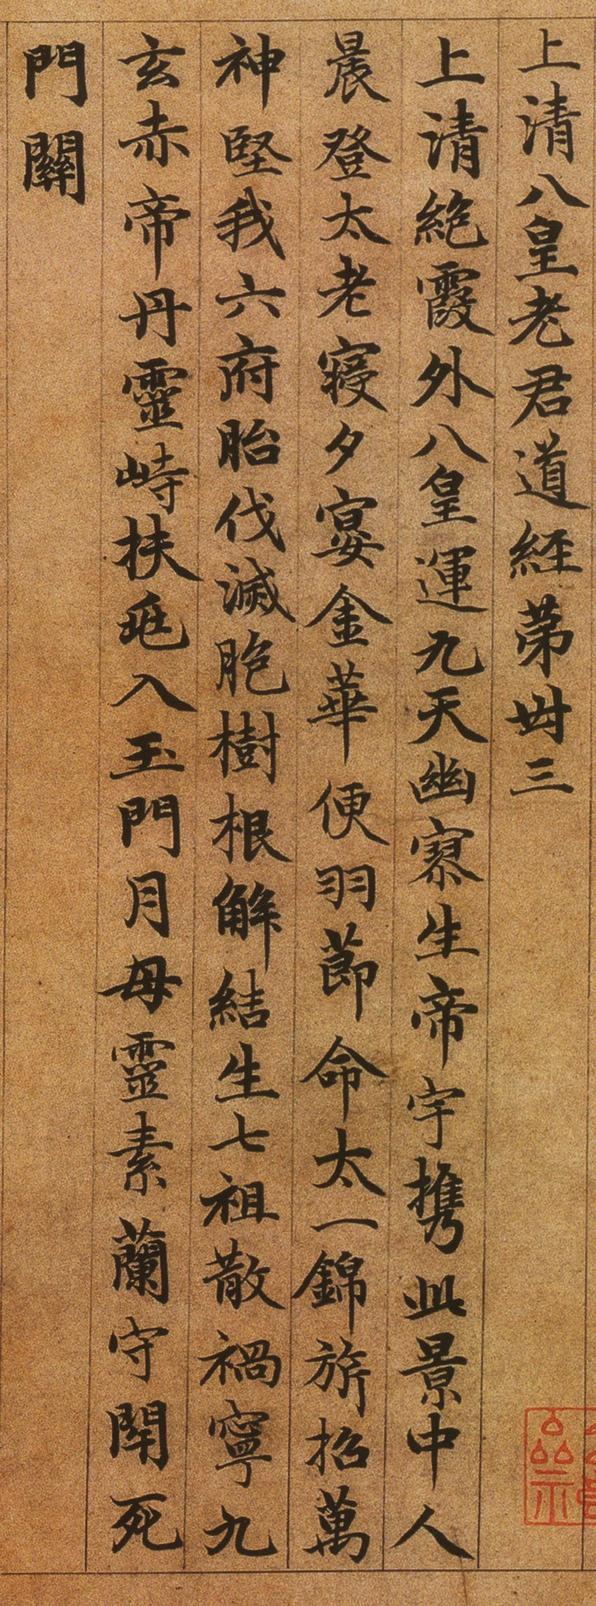 上清八皇老君道經苐卌三
上清絕霞外八皇運九天幽寥生帝宇携此景中人
晨登太老寑夕宴金華便羽節命太一錦旂招萬
神堅我六府胎伐滅胞樹根解結生七祖散禍寧九
玄赤帝丹靈峙扶入玉門月母靈素蘭守閞死
門關